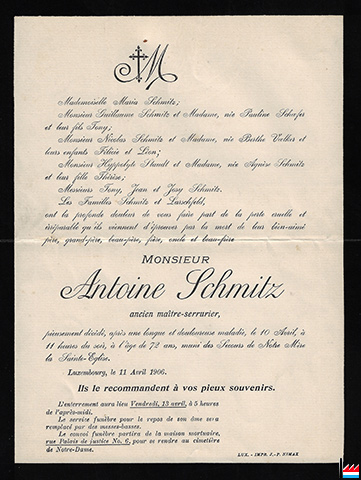 M
Mademoiselle Maria Schmitz;
Monsieur Guillaume Schmitz et Madame, née Pauline Schafer
et leur fils Tony;
Monsieur Nicolas Schmitz et Madame, née Berthe Volker et
leurs enfants Félicie et Léon;
Monsieur Hippolyte Staudt et Madame, née Agnès Schmitz
et leur fille Thérèse;
Messieurs Tony, Jean et Josy Schmitz.
Les Familles Schmitz et
ont la profonde douleur de vous faire part de la perte cruelle et
irréparable qu'ils viennent d'éprouver par la mort de leur bien-aimé
père, grand-père, beau-père, frère, oncle et beau-frère
MONSIEUR
Antoine Schmitz
ancien maître-serrurier,
pieusement décédé, après une longue et douloureuse maladie, le 10 Avril, à
11 heures du soir, à l'âge de 72 ans, muni des Secours de Notre Mère
la Sainte-Eglise.
Luxembourg, le 11 Avril 1906.
Ils le recommandent à vos pieux souvenirs.
L'enterrement aura lieu Vendredi, 13 avril, à 5 heures
de l'après-midi.
Le service funèbre pour le repos de son âme sera
remplacé par des messes-basses.
Le convoi funèbre partira de la maison mortuaire,
rue Palais de justice No. 6, pour se rendre au cimetière
de Notre-Dame.
LUX. - IMPR. J.-P. NIMAX